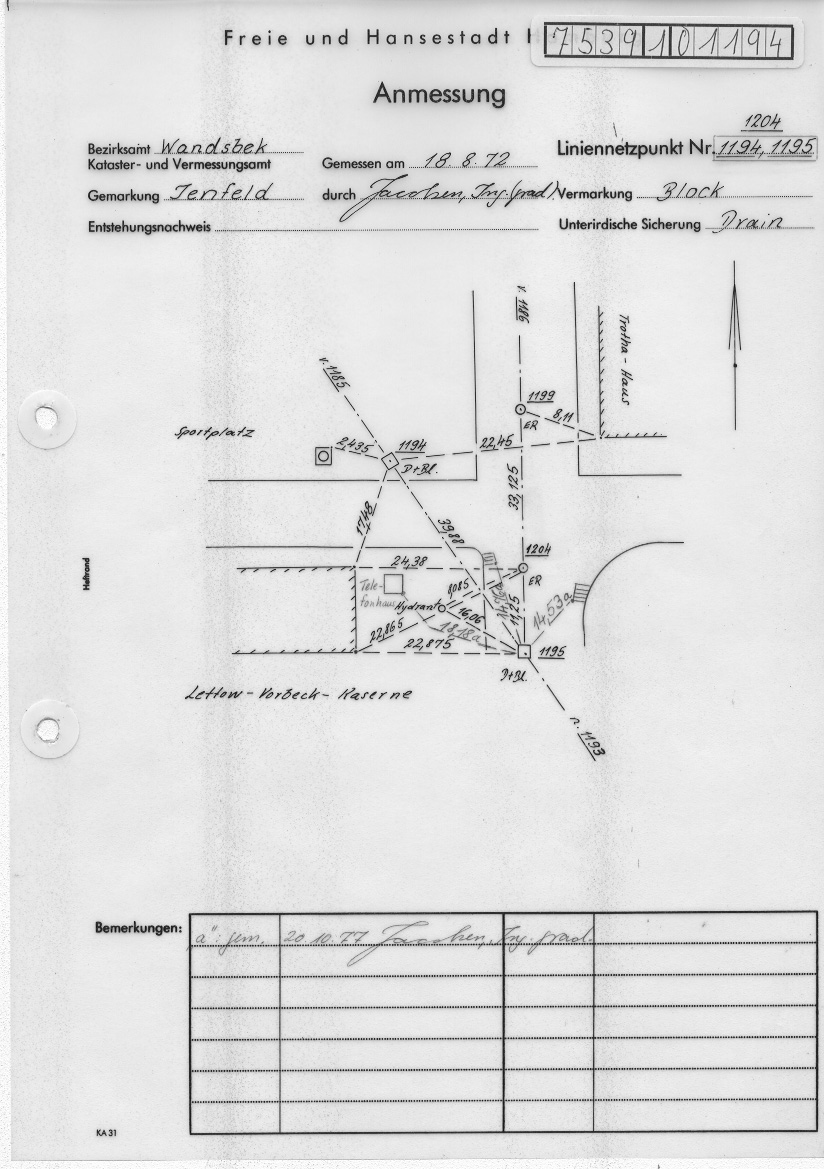 Freie und Hansestadt H
7539101194
Anmessung
1204
Bezirksamt Wandsbek
Kataster- und Vermessungsamt
Gemessen am 18.8.72
Liniennetzpunkt Nr. 1194, 1195
Gemarkung Jenfeld
durch Jacobsen, Ing. (grad.)
Vermarkung Block
Entstehungsnachweis
Unterirdische Sicherung Drain
v. 1186
Trotha-Haus
v. 1185
1199
ER
8,11
Sportplatz
2,435
1194
D+Bl.
22,45
33,125
17,48
39,88
24,38
1204
ER
Heftrand
Tele-
fonhaus
8,085
Hydrant
16,06
11,25
14,53a
22,865
18,18a
22,875
1195
D+Bl.
Lettow-Vorbeck-Kaserne
n. 1193
Bemerkungen:
"a": gem. 20.10.77 Jacobsen, Ing. grad.
KA 31